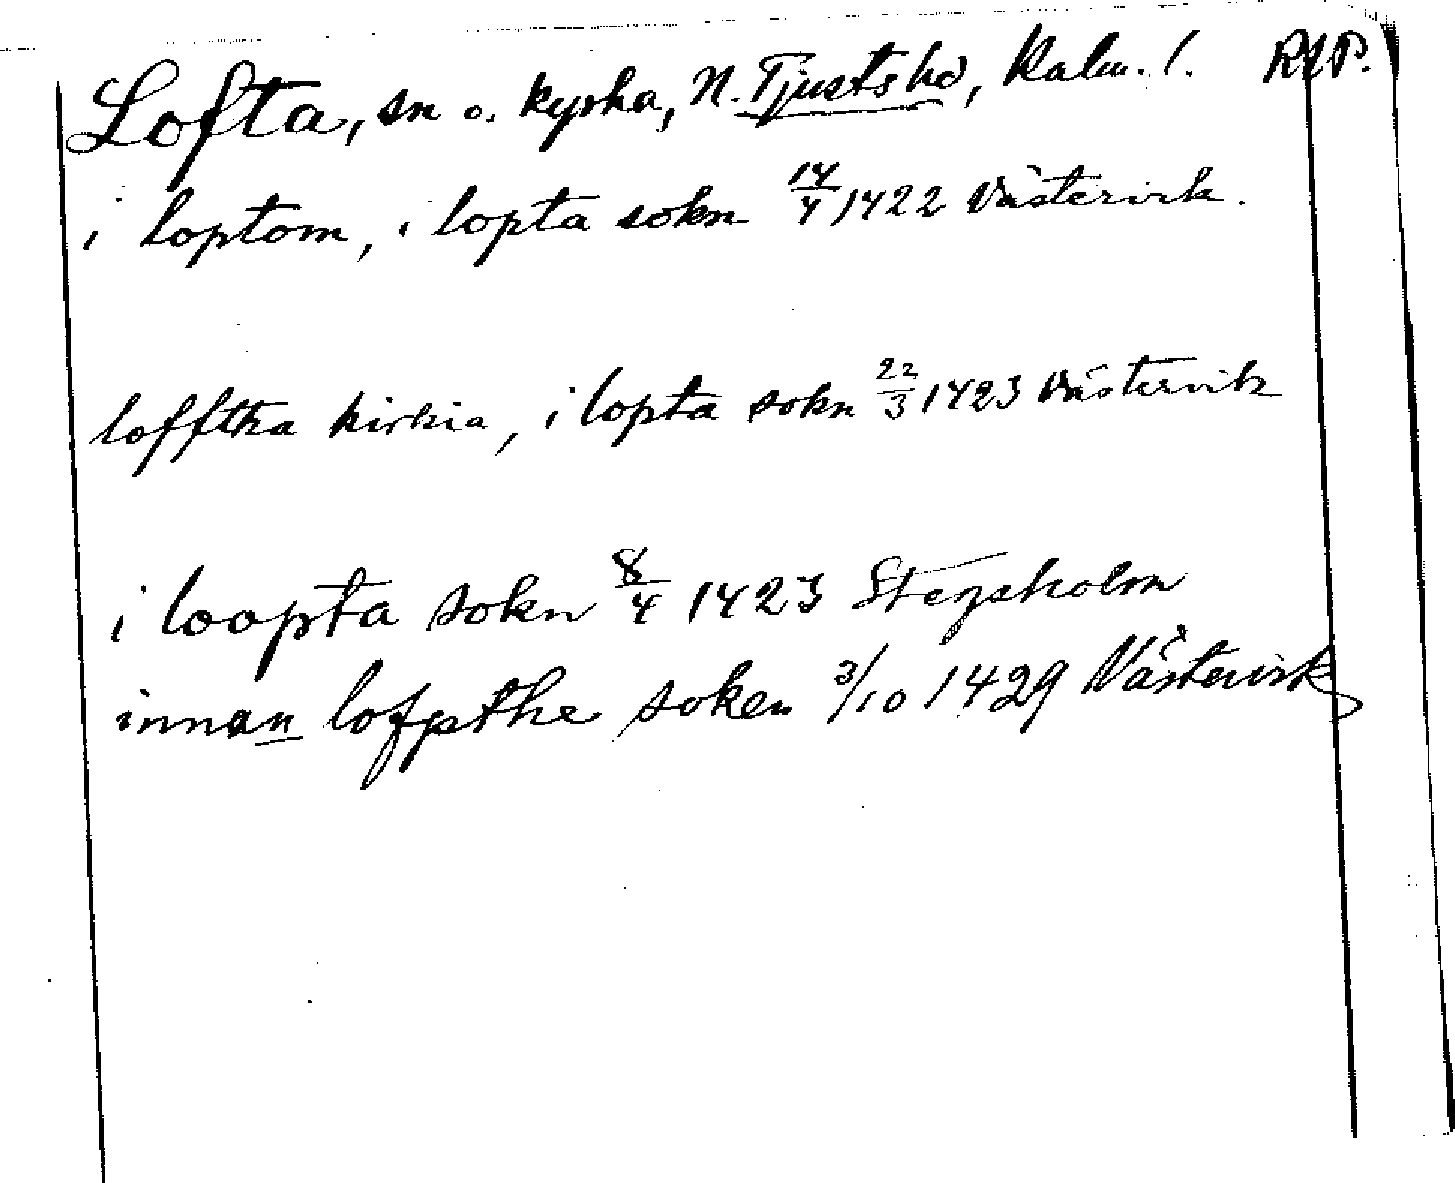 Lofta, sn o. kyrka, N. Tjusts hd, Kalm. l. RAP.
i loptom, i lopta sokn 14/4 1422 Västervik.
lofftha kirkia, i lopta sokn 22/3 1423 Västervik
i loopta sokn 8/4 1423 Stegsholm
innan lofpthe soken 3/10 1429 Västervik